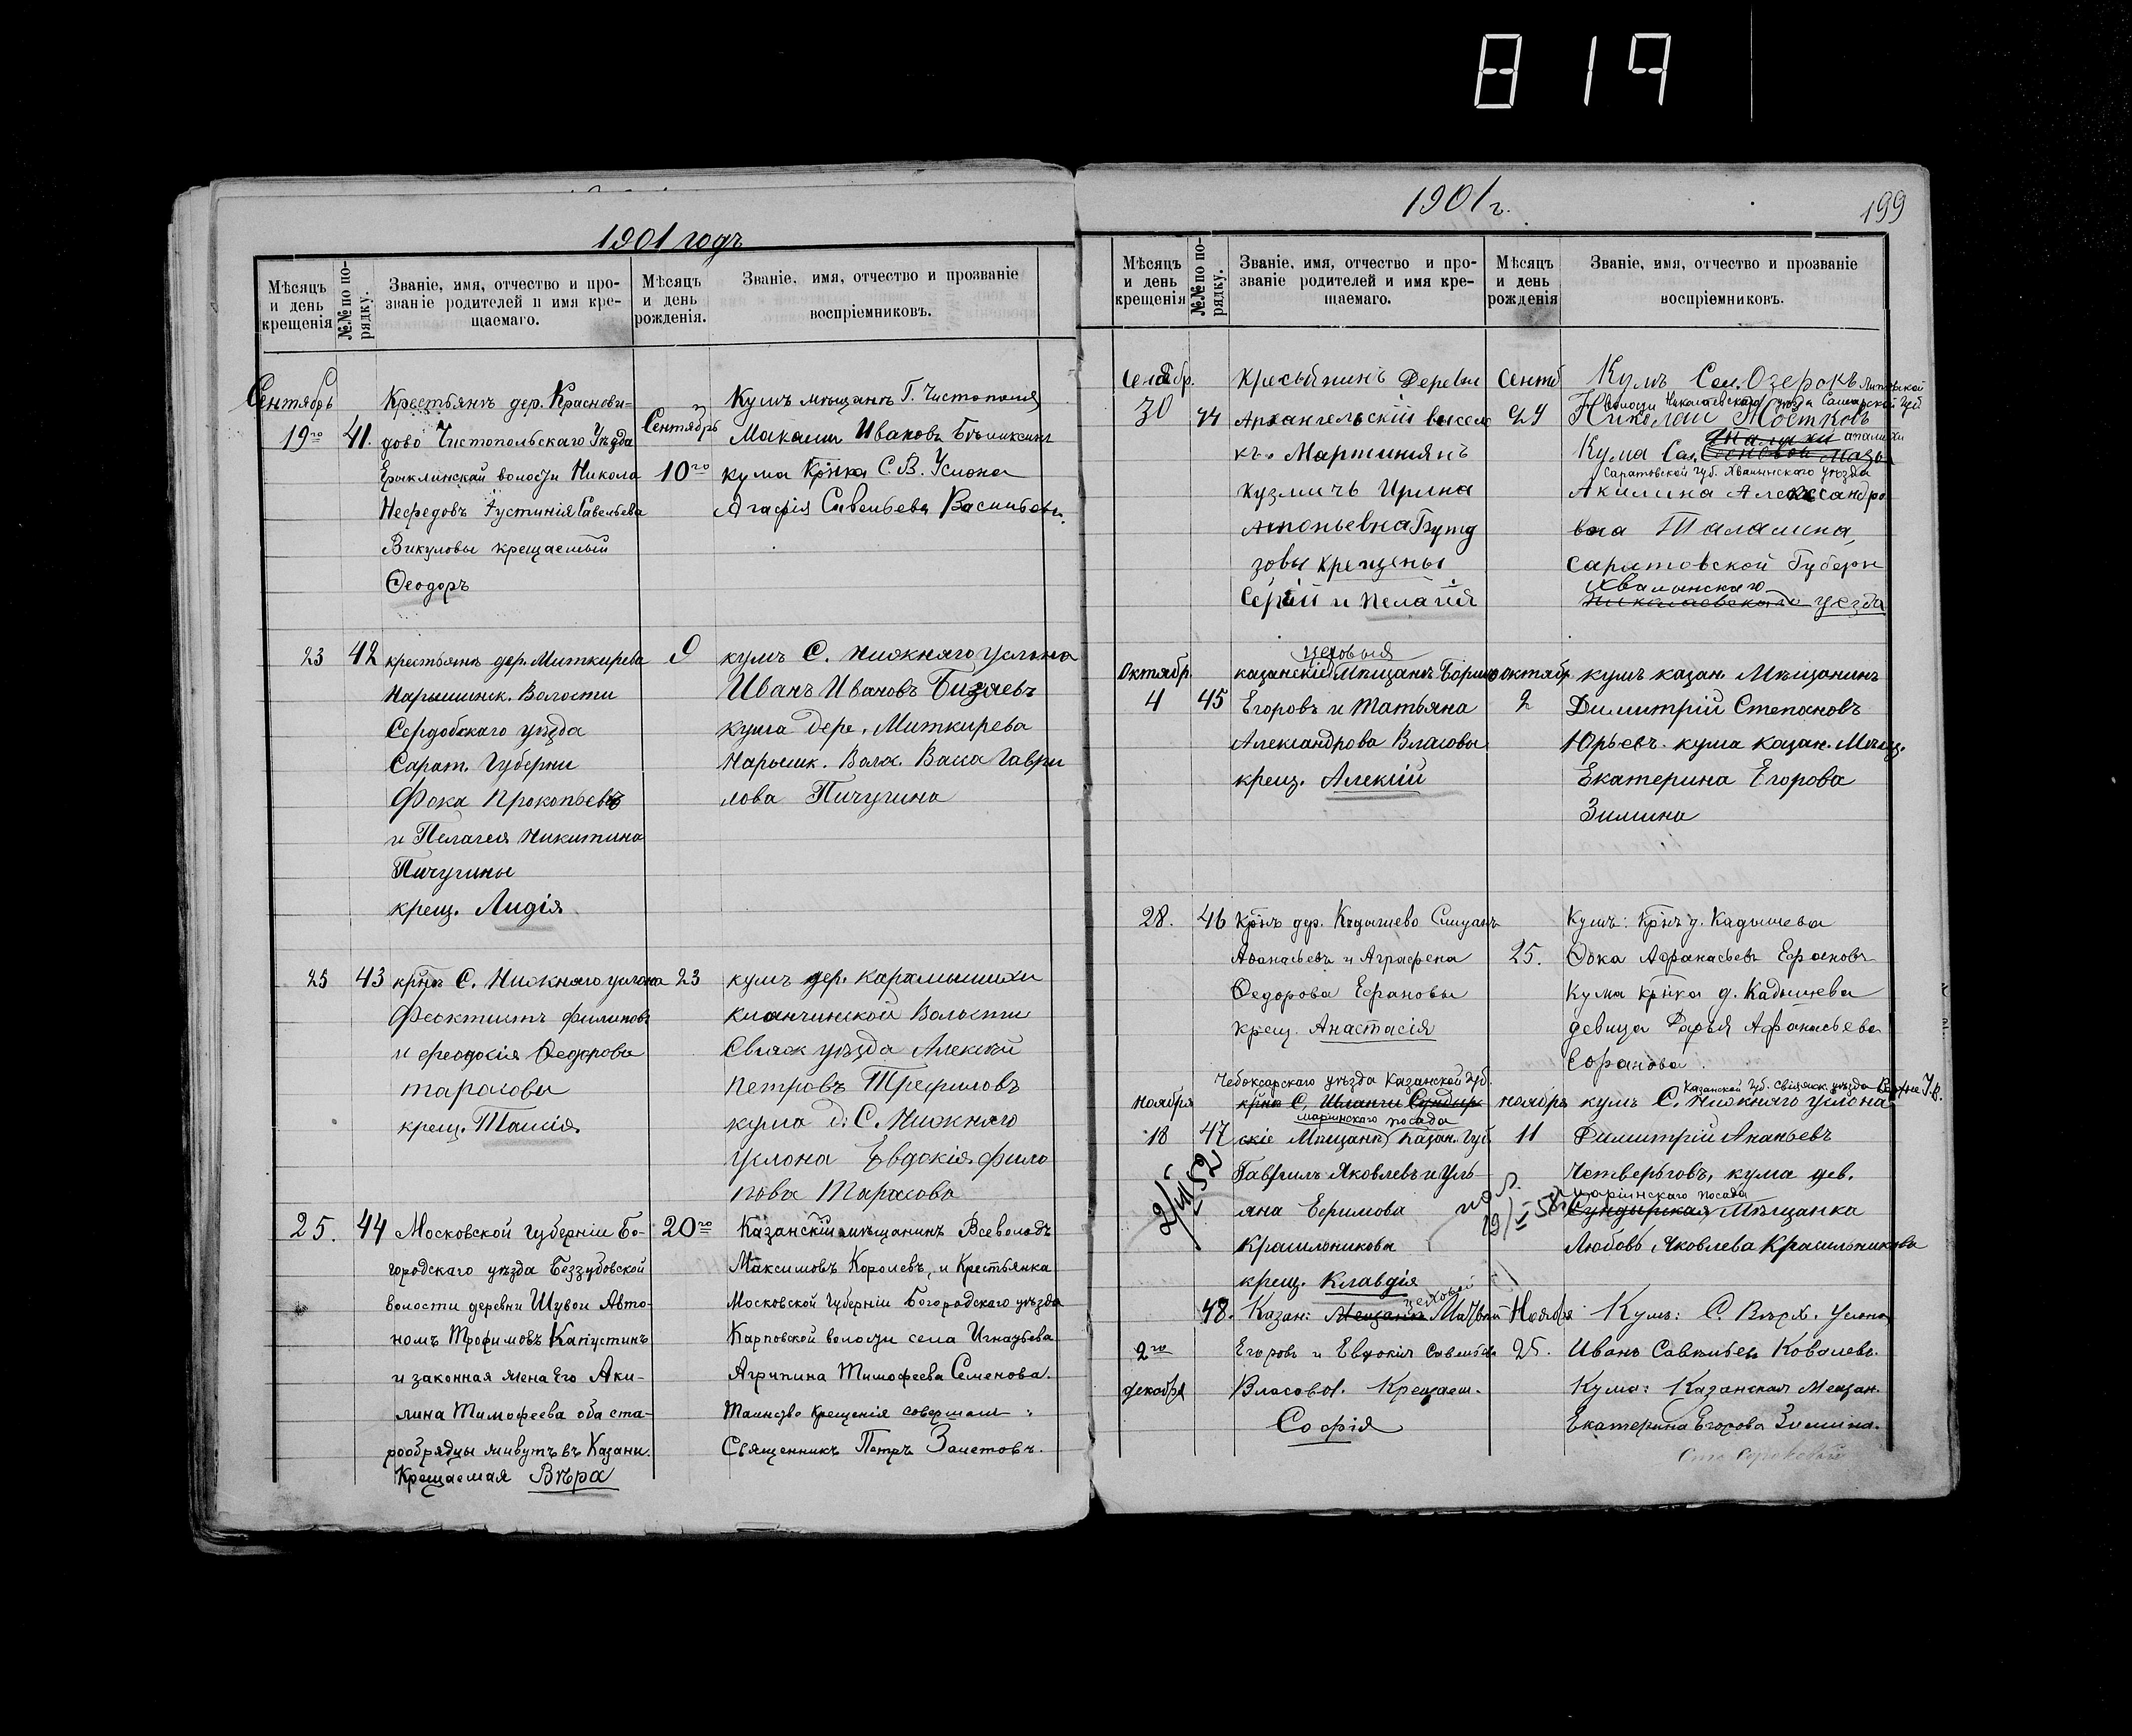 819
1901 годъ
Мѣсяцъ и день крещенія
№№ по порядку.
Званіе, имя, отчество и прозваніе родителей и имя крещаемаго.
Мѣсяцъ и день рожденія.
Званіе, имя, отчество и прозваніе воспріемниковъ.
Сентябрь
19го
41.
Крестьянъ дер. Краснови-
дово Чистопольскаго Уѣзда
Ерыклинской волости Никола
Нефедовъ Густинія Савельева
Викуловы крещаемый
Ѳеодоръ
Сентябрь
10го
Кумъ мѣщанъ Г. Чистополя
Максим Ивановъ
кума Крнка С. В. Услона
Агафія Савельева Васильева.
23
42
крестьянъ дер. Миткирева
Нарышинск. Волости
Сердобскаго уѣзда
Сарат. Губерни
Фока Прокопьевъ
и Пелагея Никитина
Пичугины
крещ. Лидія
9
кумъ С. Нижняго Услона
Иванъ Ивановъ Бизяевъ
кума дере. Миткирева
Нарышк. Волос. Васса Гаври
лова Пичугина
25
43
крнъ С. Нижняго услона
Феоктистъ Филиповъ
и Феодосія Ѳедорова
Тарасовы
крещ. Таисія
23
кумъ дер. Карамышихи
Клянчинской Волости
Свіяж уѣзда Алексѣй
Петровъ Трефиловъ
кума д: С. Нижняго
Услона Евдокія Фили
пова Тарасова
25.
44
Московской губерніи Бо-
городскаго уѣзда Беззубовской
волости деревни Шувои Авто-
номъ Трофимовъ Капустинъ
и законная жена Его Аки-
лина Тимофеева оба ста-
рообрядцы живутъ въ Казани.
Крещаемая Вѣра
20го
Казанскій мѣщанинъ Всеволодъ
Максимовъ Королевъ, и Крестьянка
Московской Губерніи Богородскаго уѣзда
Карповской волости села Игнатьева
Агрипина Тимофеева Семенова.
Таинство Крещенія совершал:
Священникъ Петръ Залетовъ.
1901 г.
199
Мѣсяцъ и день крещенія
№№ по порядку.
Званіе, имя, отчество и прозваніе родителей и имя крещаемаго.
Мѣсяцъ и день рожденія
Званіе, имя, отчество и прозваніе воспріемниковъ.
30
44
Кресьянинъ Деревни
Архангельскій высело
къ. Мартиніянъ
Кузмичъ Ирина
зовы крещены
Сергій и Пелагія
Сентяб
24
Кумъ Сел. Озерокъ
волости Николаевскаго уѣзда Самарской Губ
Николай Мостковъ
Кума Сел.
Саратовской Губ. Хвалынскаго уѣзда
Акилина Александро
вна Таламина,
Саратовской Губерн
Хвалынскаго
Николаевскаго уѣзда
Октябр.
4
45
цеховыя
казанскіе Мѣщанъ Борисъ
Егоровъ и Татьяна
Александрова Власовы
крещ. Алексій
октябр
2
кумъ казан. Мѣщанинъ
Димитрій Степановъ
Юрьевъ. кума казан. Мѣщ.
Екатерина Егорова
Зимина
28.
46
Крнъ дер. Кадышево
Аѳанасьевъ и Аграфена
Ѳедорова Ефановы
крещ. Анастасія
25.
Кумъ: Крнъ д. Кадышева
Ѳока Афанасьевъ Ефановъ
Кума крнка д. Кадышева
девица Дарья Афанасьева
Ефанова.
Чебоксарскаго уѣзда Казанской Губ.
Ноября
18
47
маріинскаго посада
скіе Мѣщанъ Казан. Губ
Гавріилъ Яковлевъ и Уль
яна Ефимова
Красильникова
крещ. Клавдія
ноября
11
Казанской Губ. Свіяжск. уѣзда
кумъ С. Нижняго услона
Димитрій Ананьевъ
Четверьговъ, кума дев.
маріинскаго посада
Сундырская Мѣщанка
Любовь Яковлева Красильникова
2го
декабря
48.
цеховой
Казан: Мещанъ Матвей
Егоровъ и Евдокія Савельева
Власовы. Крещаем.
Софія
Ноября
25.
Кумъ: С. Вѣрх. Услона
Иванъ Савельев Ковалевъ.
Кума: Казанская Мещан.
Екатерина Егорова Зимина.